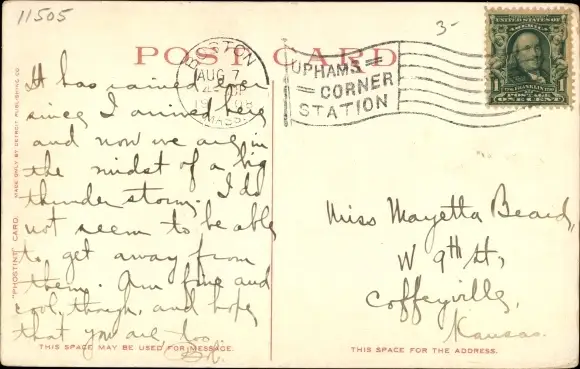 11505
3-
POST CARD
BOSTON
AUG 7
MASS.
UPHAMS
CORNER
STATION
UNITED STATES OF AMERICA
1706 FRANKLIN 1790
1 1
POSTAGE
ONE CENT
It has rained ever
since I arrived here
and now we are in
the midst of a big
thunder storm. I do
not seem to be able
to get away from
them. Am fine and
cool, though, and hope
that you are, too
Miss Mayetta Beard,
W 9th St,
Coffeyville,
Kansas.
"PHOSTINT" CARD. MADE ONLY BY DETROIT PUBLISHING CO.
THIS SPACE MAY BE USED FOR MESSAGE.
THIS SPACE FOR THE ADDRESS.